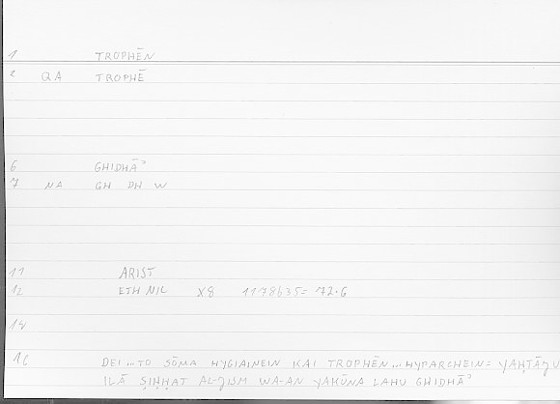 1 TROPHĒN
2 QA TROPHĒ
6 GHIDHĀʾ
7 NA GH DH W
11 ARIST
12 ETH NIC X8 1178b35= 72.6
14
16 DEI ... TO SŌMA HYGIAINEIN KAI TROPHĒN ... HYPARCHEIN= YAḤTĀǦU
ILĀ ṢIḤḤAT AL-ǦISM WA-AN YAKŪNA LAHU GHIDHĀʾ